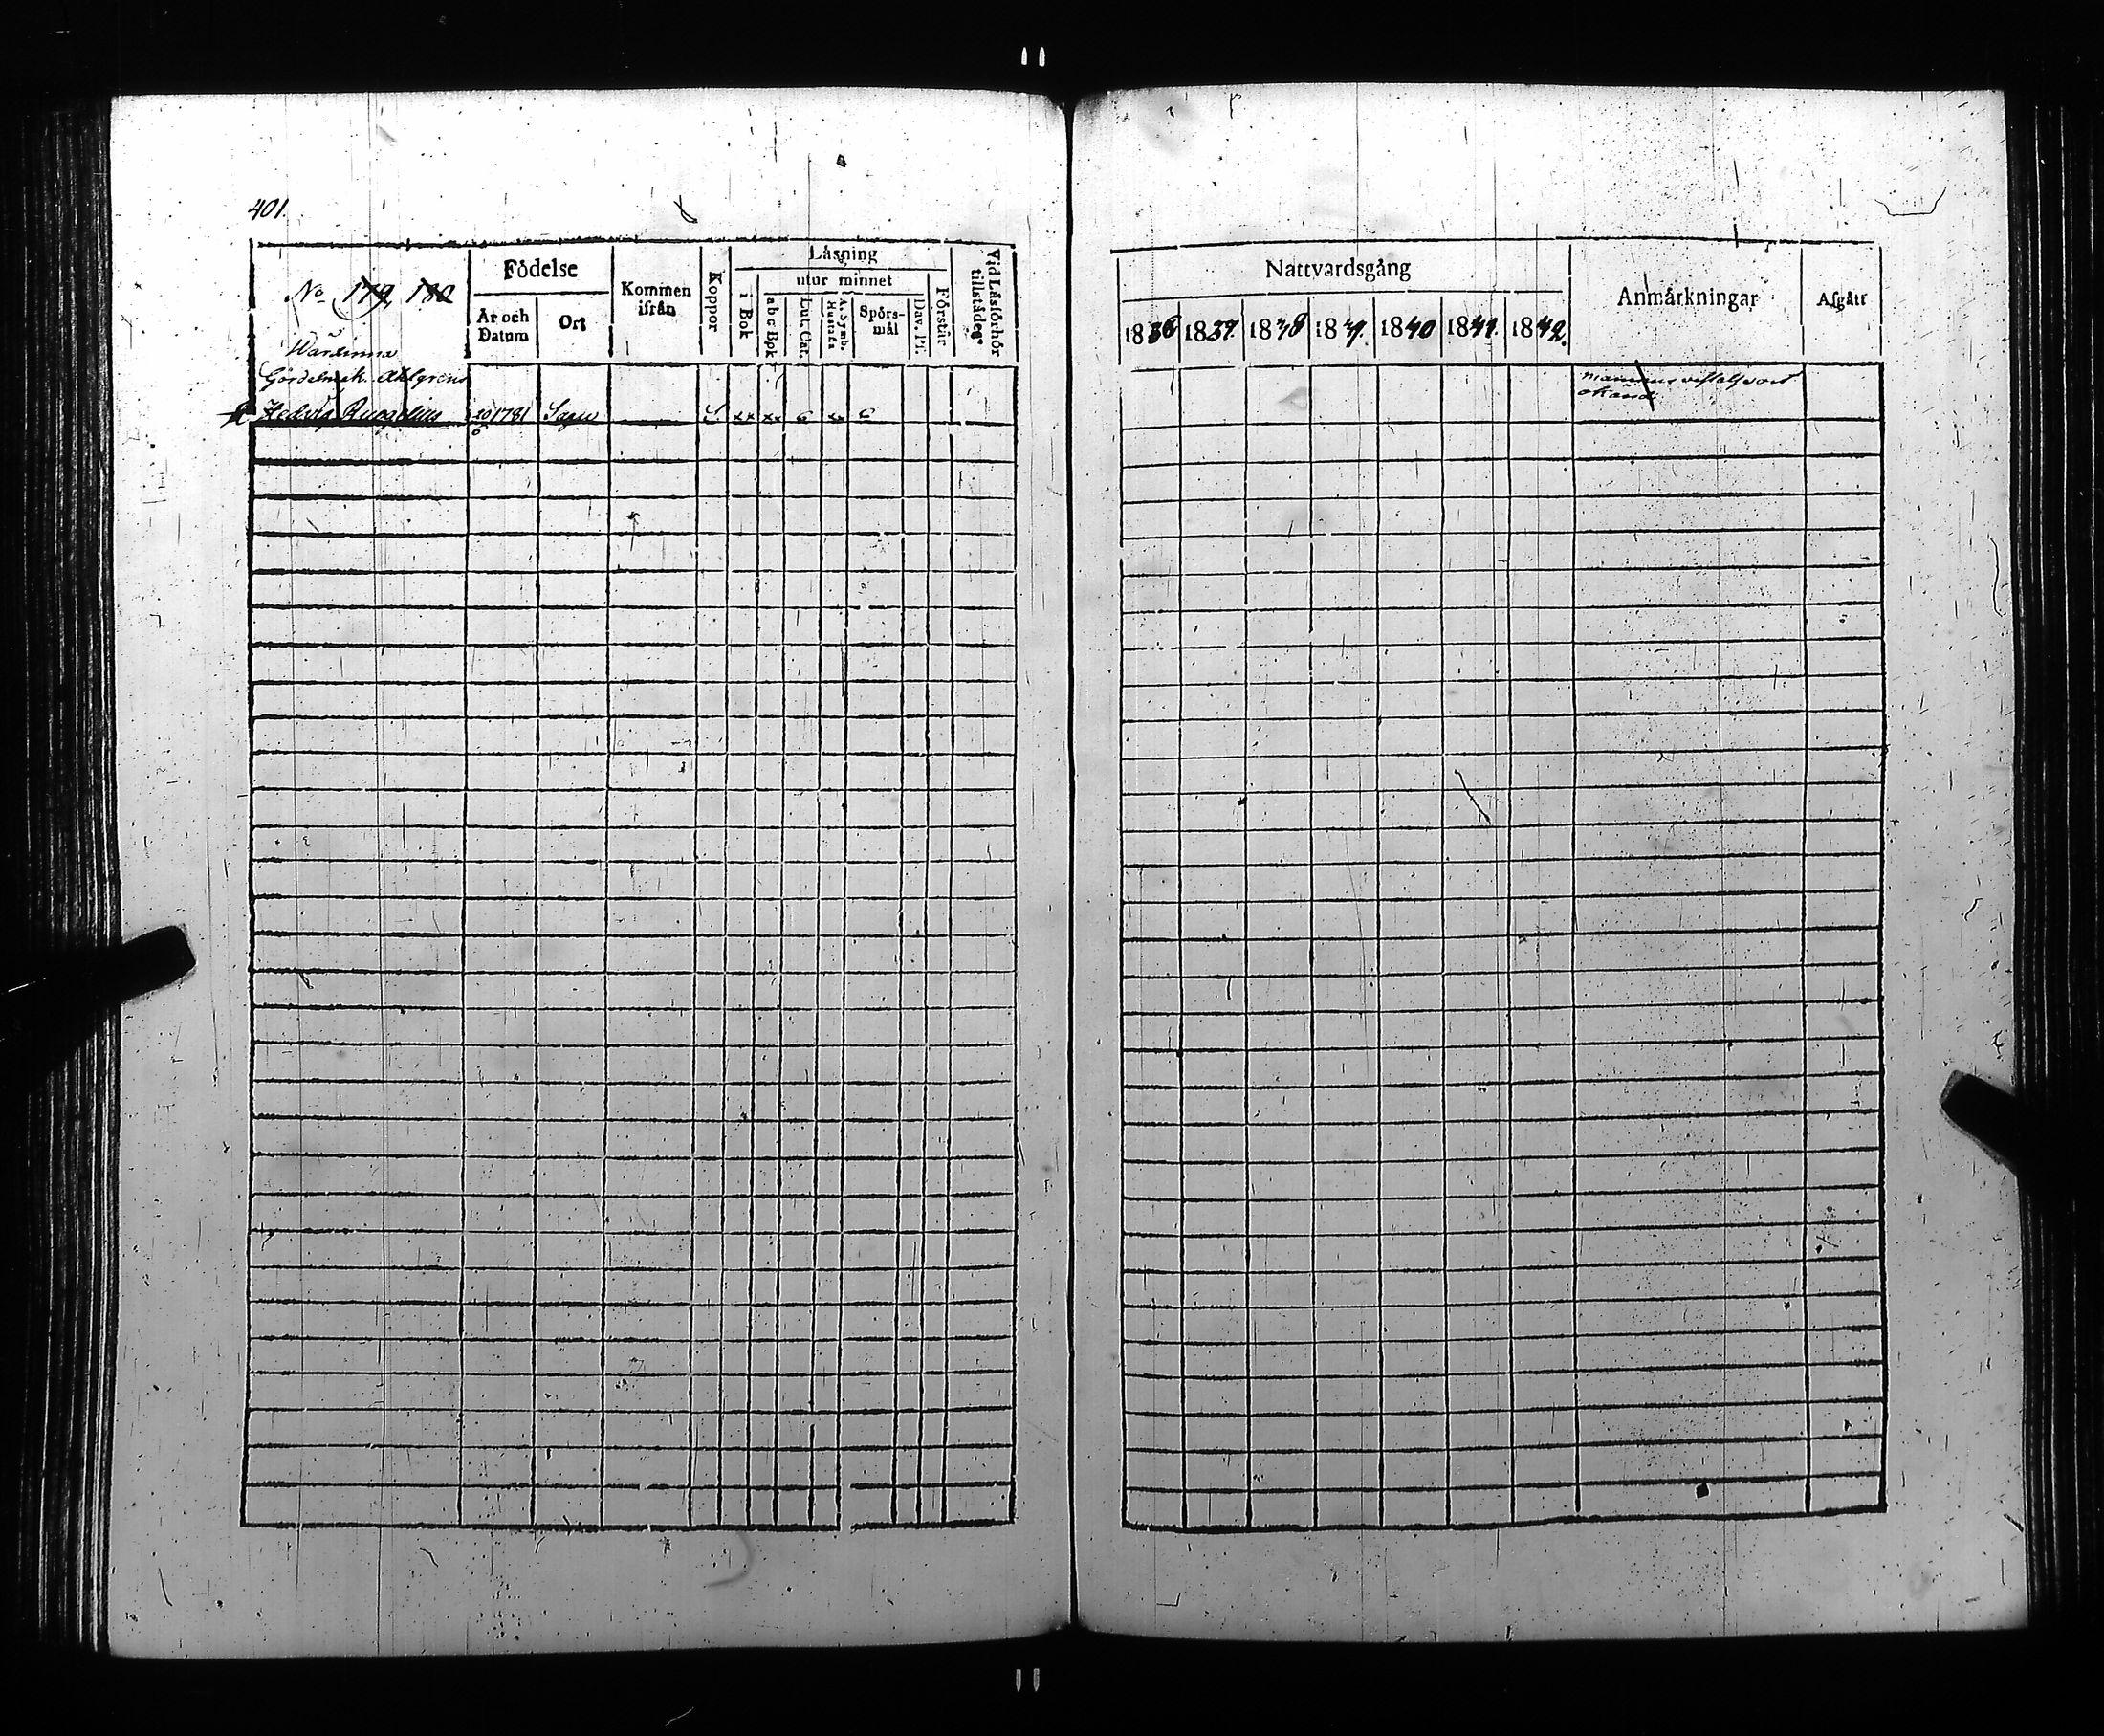 401.
No 179, 180
Wärdinna
Gördelmak. Ahlgrens
Hedvig
20 1781
S xx xx 6 xx 6
Födelse
År och Datum
Ort
Kommen ifrån
Koppor
Läsning
i Bok
utur minnet
abc Bok
Lut. Cat.
A. Symb. Hustafla
Spörs-mål
Dav. Ps.
Förstår
Vid Läsförhör tillstädes
Nattvardsgång
1836 1837. 1838 1839. 1840 1841. 1842.
Anmärkningar
Afgått
mannens vistelseort
okänd